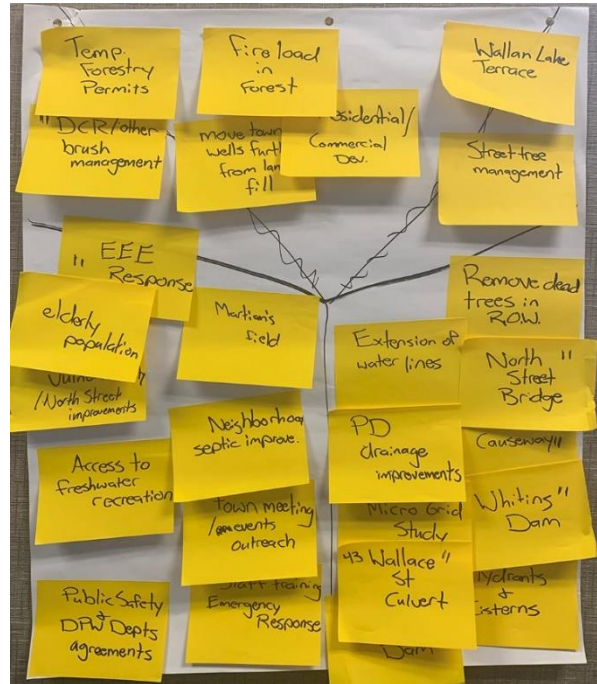 Temp.
Forestry
Permits
Fire load
in
Forest
Wallan Lake
Terrace
"DCR/other
brush
management
move town
wells furt
from lan
fill
sidential/
Commercial
Dev.
Street tree
management
" EEE
Response
elderly
population
Martian's
field
Remove dead
trees in
R.O.W.
Extension of
water lines
North "
Street
Bridge
/North Street
improvements
Neighborhoo
septic improve.
PD
drainage
improvements
Causeway"
Access to
freshwater
recreation
town meeting
events
outreach
Micro Grid
Study
Whiting "
Dam
43 Wallace "
St
Culvert
Hydrants
&
Cisterns
Public Safety
&
DPW Depts
agreements
Staff training
Emergency
Response
Dam